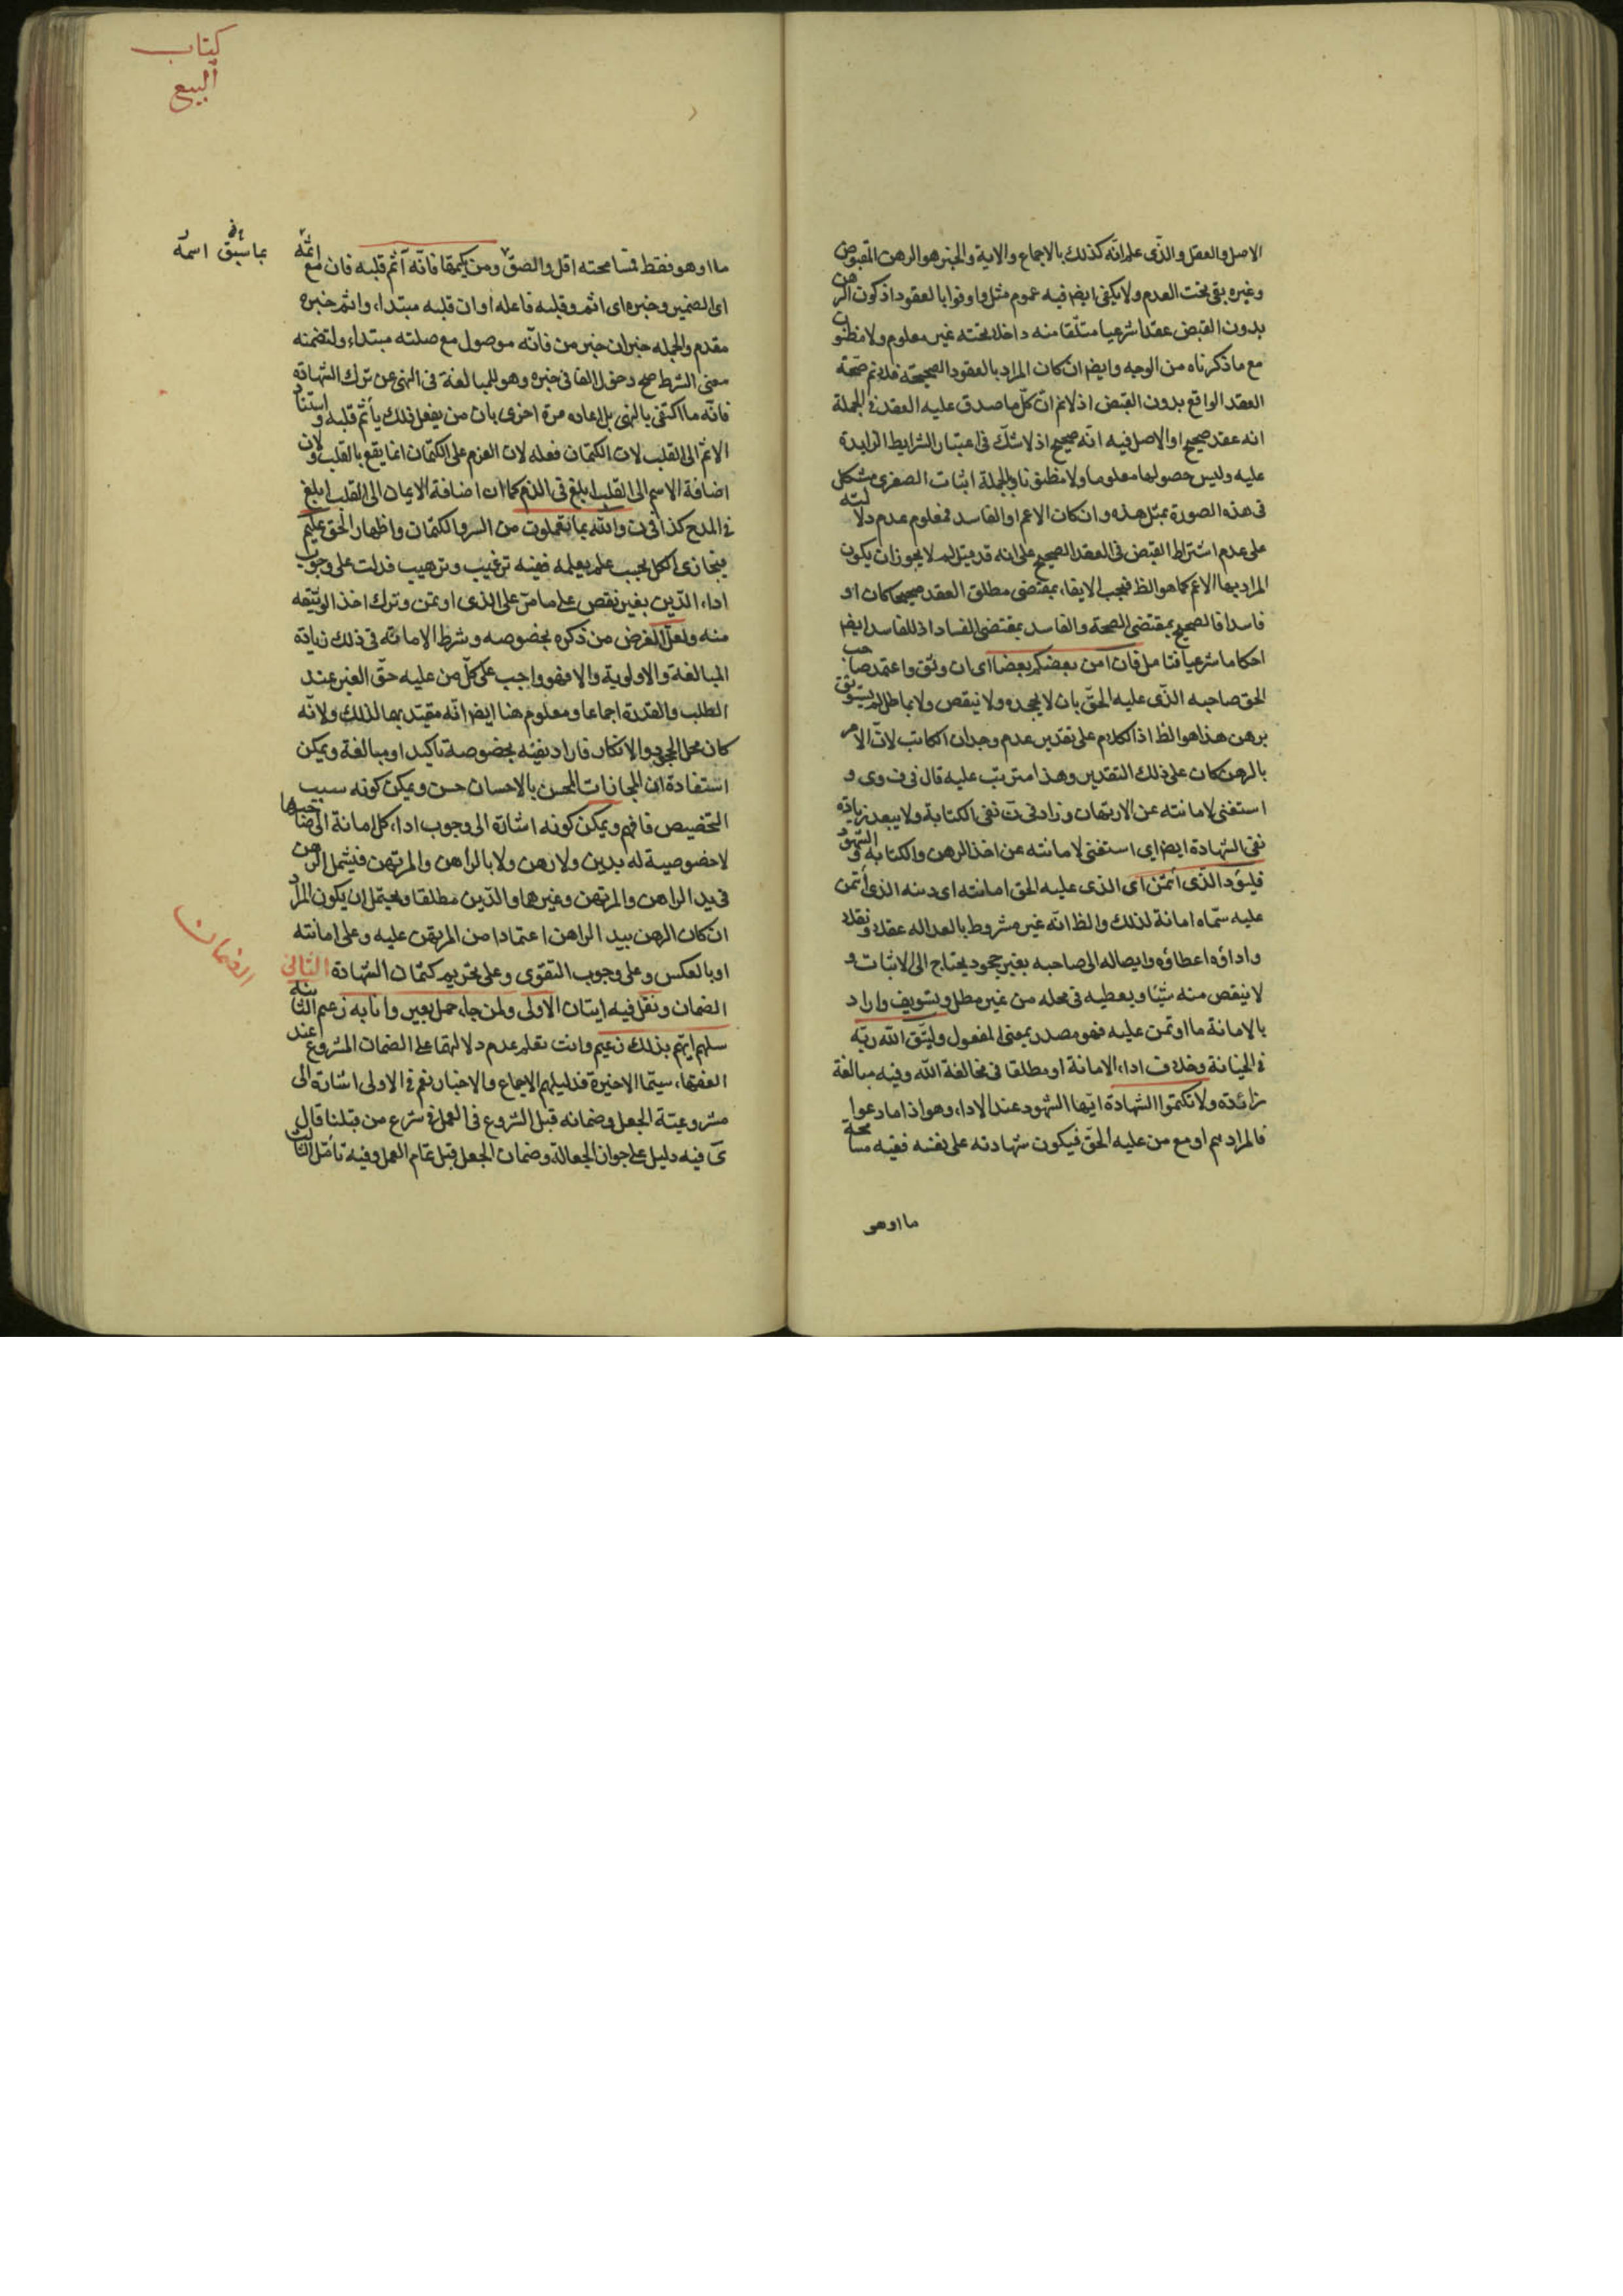 الاصل والعقل والذى علم انّه كذلك بالاجماع والاية والخبر هو الرهن المقبوض
وغيره بقى تحت العدم ولا يكفى ايض فيه عموم مثل واوفوا بالعقود اذ كون الرهن
بدون القبض عقدا شرعيا متلقا منه داخلا تحته غير معلوم ولا مظنون
مع ما ذكرناه من الوجه وايض ان كان المراد بالعقود الصحيحة فلا نم صحّة
العقد الواقع بدون القبض اذ لا نم انّ كلّ ما صدق عليه العقد فى الجملة
انه عقد صحيح او الاصل فيه انّه صحيح اذ لا شكّ فى اعتبار الشرايط الزايدة
عليه وليس حصولها معلوما ولا مظنونا وبالجملة اثبات الصغرى مشكل
فى هذه الصورة بمثل هذه وان كان الاعم او الفاسد فمعلوم عدم دلالته
على عدم اشتراط القبض فى العقد الصحيح على انه قد يقال لم لا يجوز ان يكون
المراد بها الاعم كما هو الظ فيجب الايفاء بمقتضى مطلق العقد صحيحا كان او
فاسدا فالصحيح بمقتضى الصحة والفاسد بمقتضى الفساد اذ للفاسد ايض
احكاما شرعيا فتامل فان امن بعضكم بعضا اى ان وثق واعتمد صاحب
الحق صاحبه الذّى عليه الحقّ بان لا يجحده ولا ينقص ولا يماطل لم يستوثق
برهن هذا هو الظ اذ الكلام على تقدير عدم وجدان الكاتب لانّ الامر
بالرهن كان على ذلك التقدير وهذا مترتب عليه قال فى ف وى و
استغنى لامانته عن الارتهان وزاد فى ن نفى الكتابة ولا يبعد زيادة
نفى الشهادة ايض اى استغنى لامانته عن اخذ الرهن والكتابه والشهود
فليؤد الذّى ائتمن اى الذى عليه الحق امانته اى دينه الذى أتمن
عليه سمّاه امانة لذلك والظ انّه غير مشروط بالعداله عقلا ونقلا
واداؤه اعطاؤه وايصاله الى صاحبه بغير جحود يحتاج الى الاثبات و
لا ينقص منه شيئا ويعطيه فى محله من غير مطل وتسويف واراد
بالامانة ما اوتمن عليه فهو مصدر بمعنى المفعول وليتّق الله ربّه
فى الخيانة وخلاف اداء الامانة او مطلقا فى مخالفة الله وفيه مبالغة
زائدة ولا تكتموا الشهادة ايّها الشهود عند الاداء وهو اذا ما دعوا
فالمراد هم او مع من عليه الحقّ فيكون شهادته على نفسه ففيه مسامحة
ما او هو
كتاب
البيع
ما او هو فقط فمسامحته اقل والصق ومن يكتمها فانّه آثم قلبه فان مع اسمه
اى الضمير وخبره اى اثم وقلبه فاعله او ان قلبه مبتداء واثم خبره
مقدم والجمله خبر ان خبر من فانّه موصول مع صلته مبتداء ولتضمنه
معنى الشرط صح دخول الفا فى خبره وهو للمبالغة فى النهى عن ترك الشهادة
فانّه ما اكتفى بالنهى بل اعاده مرة اخرى بان من يفعل ذلك يأثم قلبه واسناد
الاثم الى القلب لان الكتمان فعله لان العزم على الكتمان انما يقع بالقلب ولان
اضافة الاسم الى القلب ابلغ فى الذم كما ان اضافة الايمان الى القلب ابلغ
فى المدح كذا فى ن والله بما تعملون من السر والكتمان واظهار الحق عليم
فيجازى الكل بحسب علم بعلمه ففيه ترغيب وترهيب فدلت على وجوب
اداء الدّين بغير نقص على ما مرّ على الذى اوتمن وترك اخذ الوثيقه
منه ولعلّ الغرض من ذكره بخصوصه وشرط الامانه فى ذلك زيادة
المبالغة والاولوية والا فهو واجب على كلّ من عليه حقّ الغير عند
الطلب والقدرة اجماعا ومعلوم هنا ايض انّه مقيّد بها لذلك ولانّه
كان محل الجحود والانكار فاراد نفيه بخصوصه تاكيدا ومبالغة ويمكن
استفادة ان المجازات المحسن بالاحسان حسن ويمكن كونه سبب
التخصيص فافهم ويمكن كونه اشارة الى وجوب اداء كل امانة الى صاحبها
لا خصوصية له بدين ولا رهن ولا بالراهن والمرتهن فيشمل الرهن
فى يد الراهن والمرتهن وغيرها والدّين مطلقا ويحتمل ان يكون المراد
ان كان الرهن بيد الراهن اعتمادا من المرتهن عليه وعلى امانته
او بالعكس وعلى وجوب التقوى وعلى تحريم كتمان الشهادة الثانى
الضمان ونقل فيه ايتان الاولى ولمن جاء حمل بعير وانا به زعيم الثانية
سلهم ايّهم بذلك زعيم وانت تعلم عدم دلالتهما على الضمان المشروع عند
الفقهاء سيّما الاخيرة فدليلهم الاجماع والاخبار نعم فى الاولى اشارة الى
مشروعيّة الجعل وضمانه قبل الشروع فى العمل فى شرع من قبلنا قال
ى فيه دليل على جواز الجعالة وضمان الجعل قبل تمام العمل وفيه تأمّل الثالث
الضمان